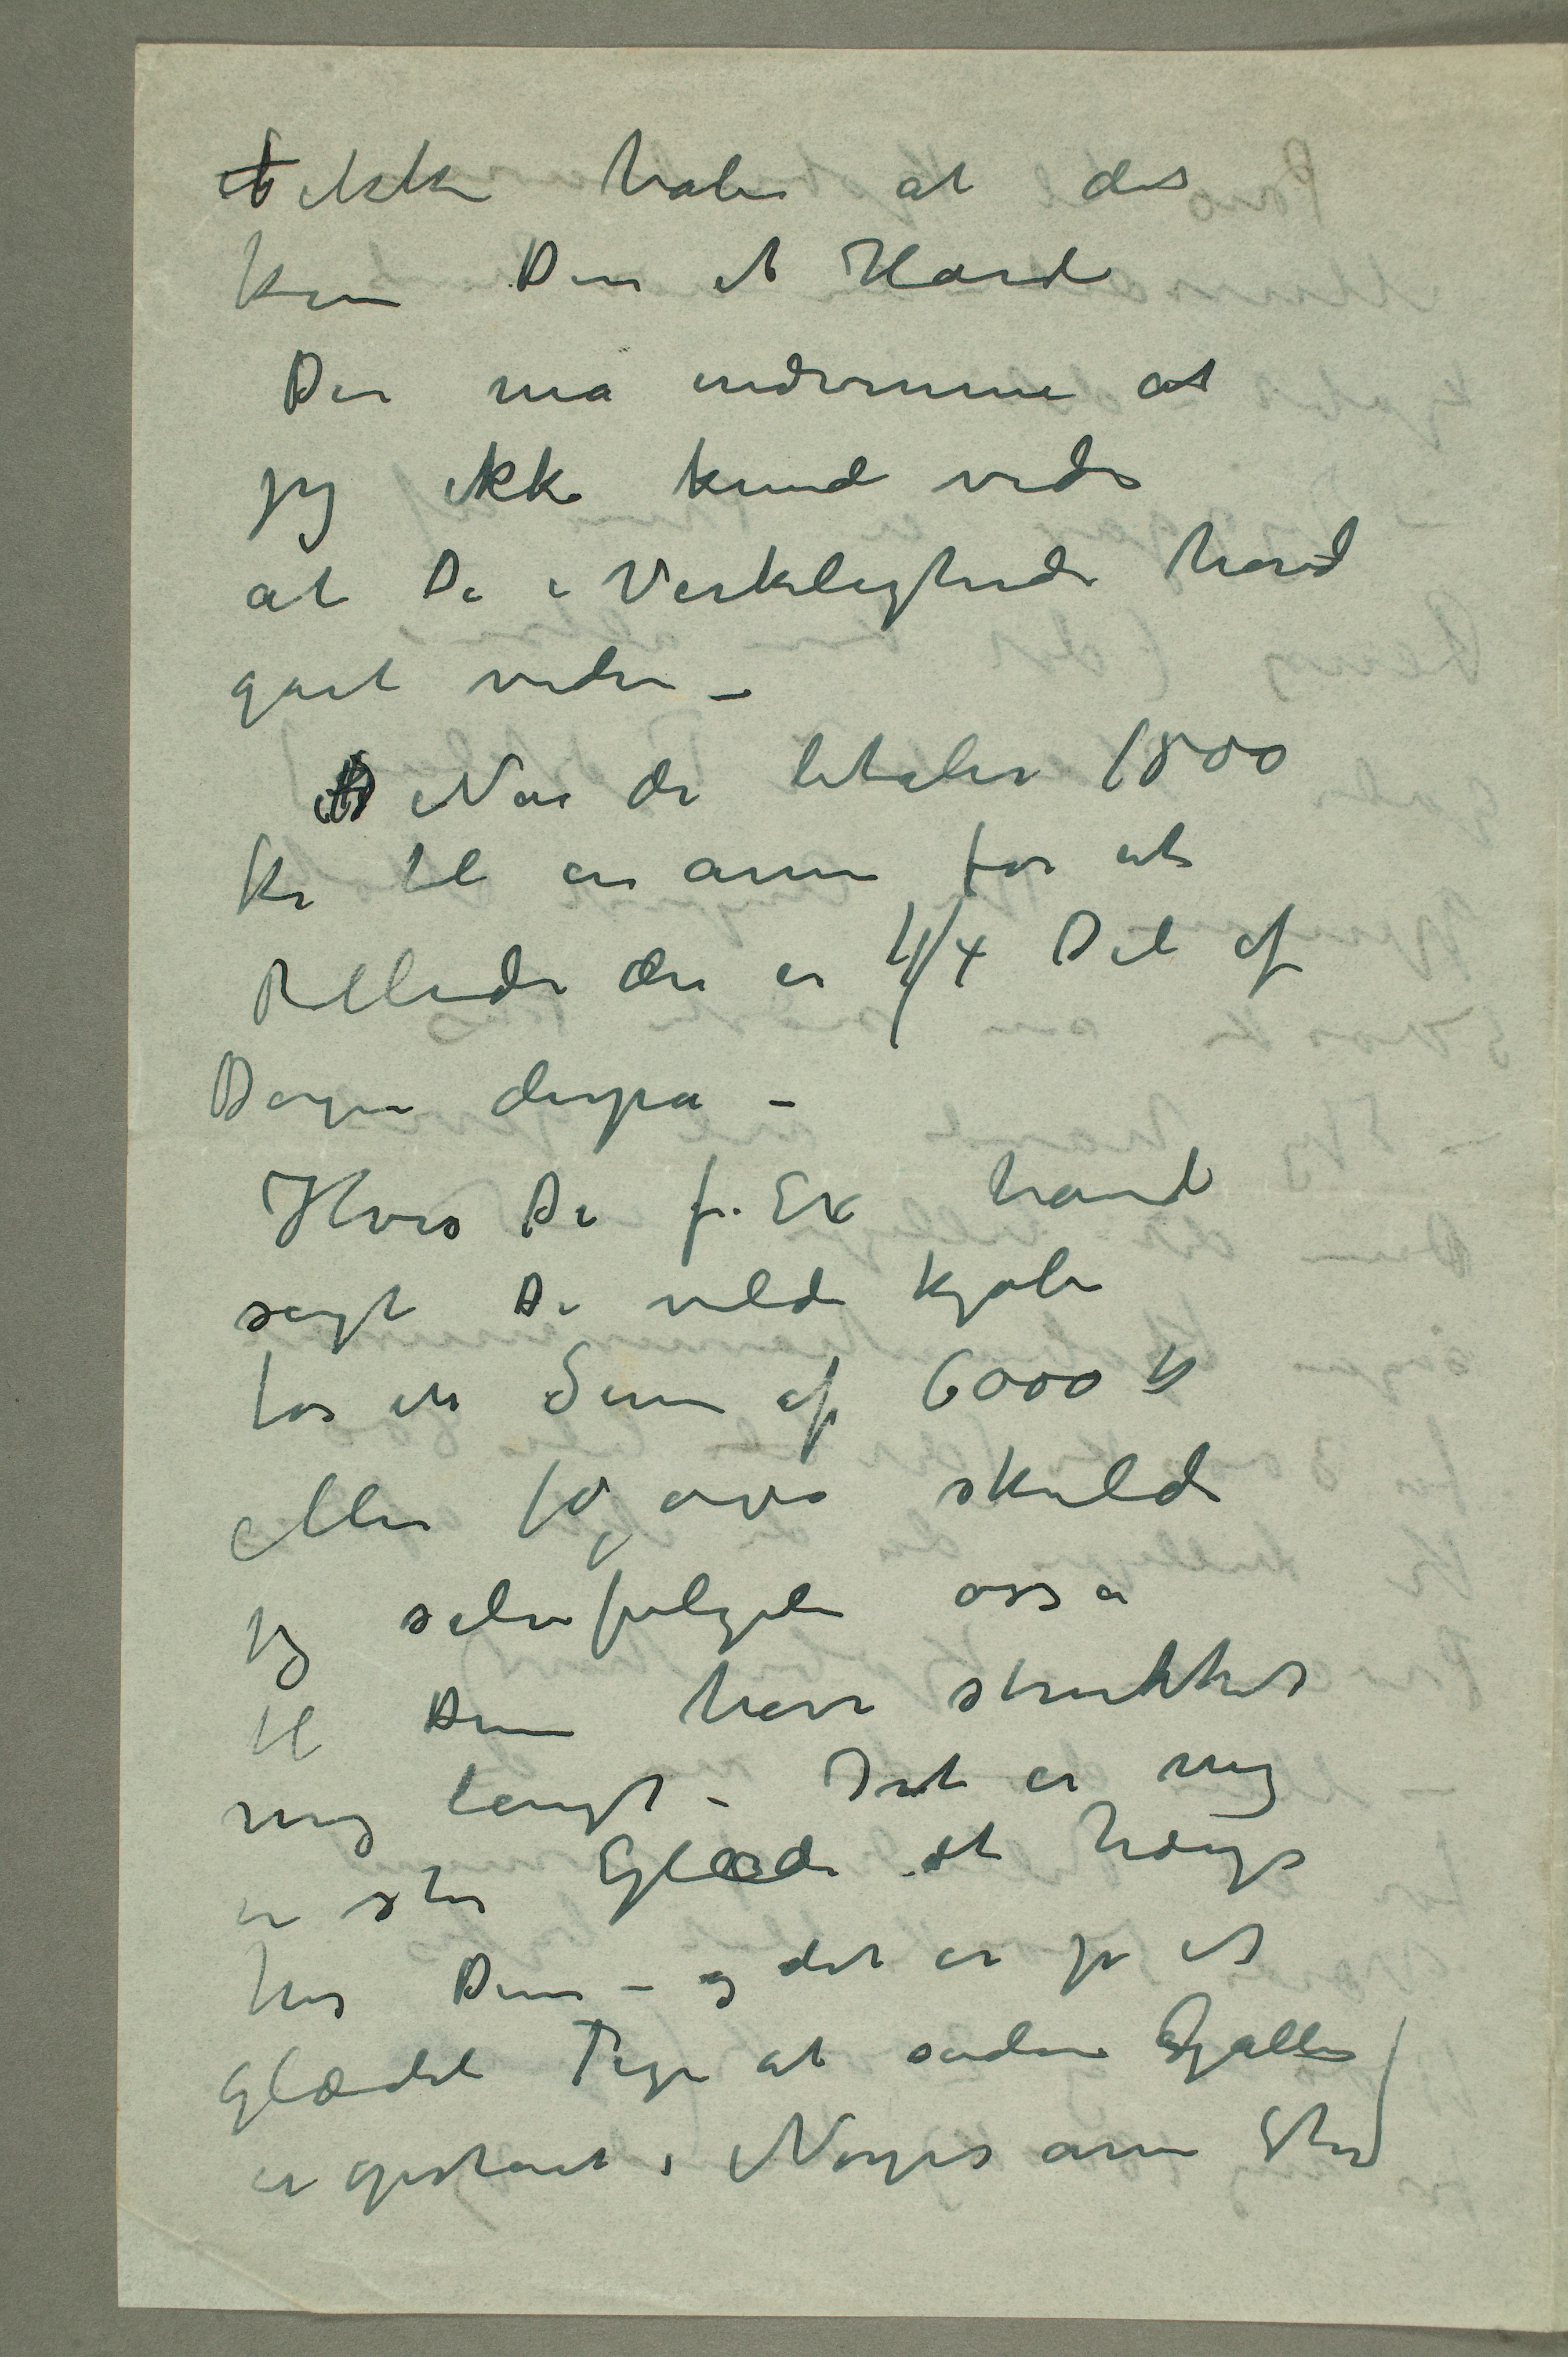 ikke håber at det
kom Dem et Hårde
De må indrømme at
jeg ikke kunde vide
at De i Virkeligheden havde
gået videre –
Når De betaler 1800
Kr til en anden for et
Billede der er 1/4 Del af
Dagen derpå –
Hvis De f. Ex havde
sagt De vilde kjøbe
for en Sum af 6000 Kr
eller 10,000 skulde
jeg selvfølgelig også
til Dem have strukket
mig langt – Det er mig
en stor Glæde at hænge
hos Dem – og det er jo et
glædeligt Tegn at sådanne Gallerier
er opstået i Norge